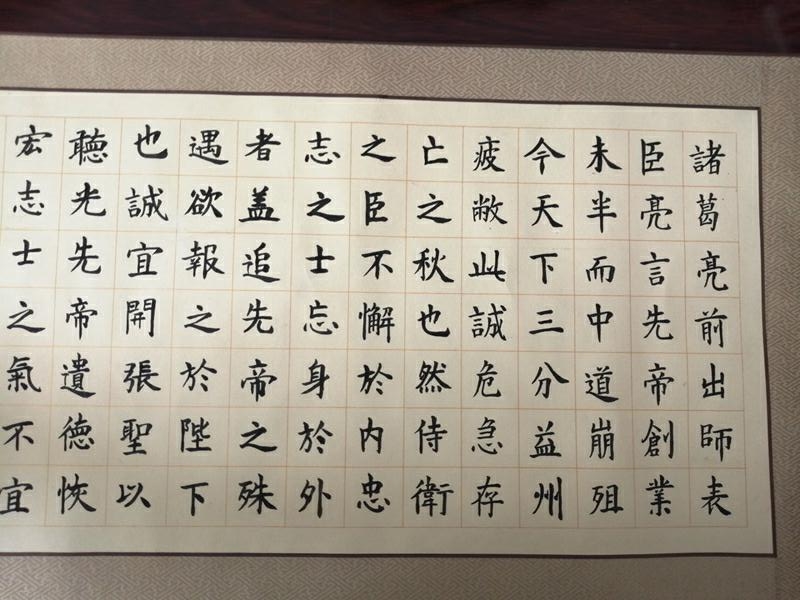 諸葛亮前出師表
臣亮言先帝創業
未半而中道崩殂
今天下三分益州
疲敝此誠危急存
亡之秋也然侍衛
之臣不懈於内忠
志之士忘身於外
者盖追先帝之殊
遇欲報之於陛下
也誠宜開張聖以
聽光先帝遺德恢
宏志士之氣不宜